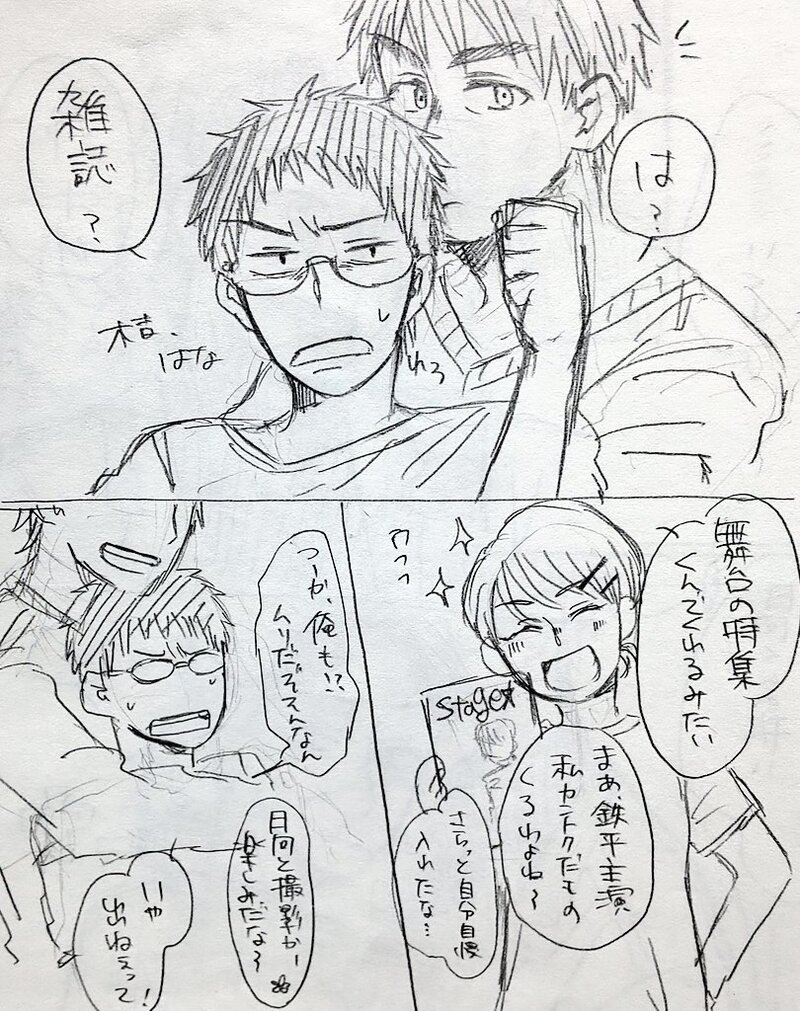 は?
雑誌
?
木吉、
はなれろ
舞台の特集
くんでくれるみたい
わっっ
Stage☆
まあ、鉄平主演
私カントクだもの
くるわよね〜
さらっと自分自慢
入れたな…
つーか、俺も!?
ムリだぞそんなん
日向と撮影かー
楽しみだな〜
いや
出ねぇって!